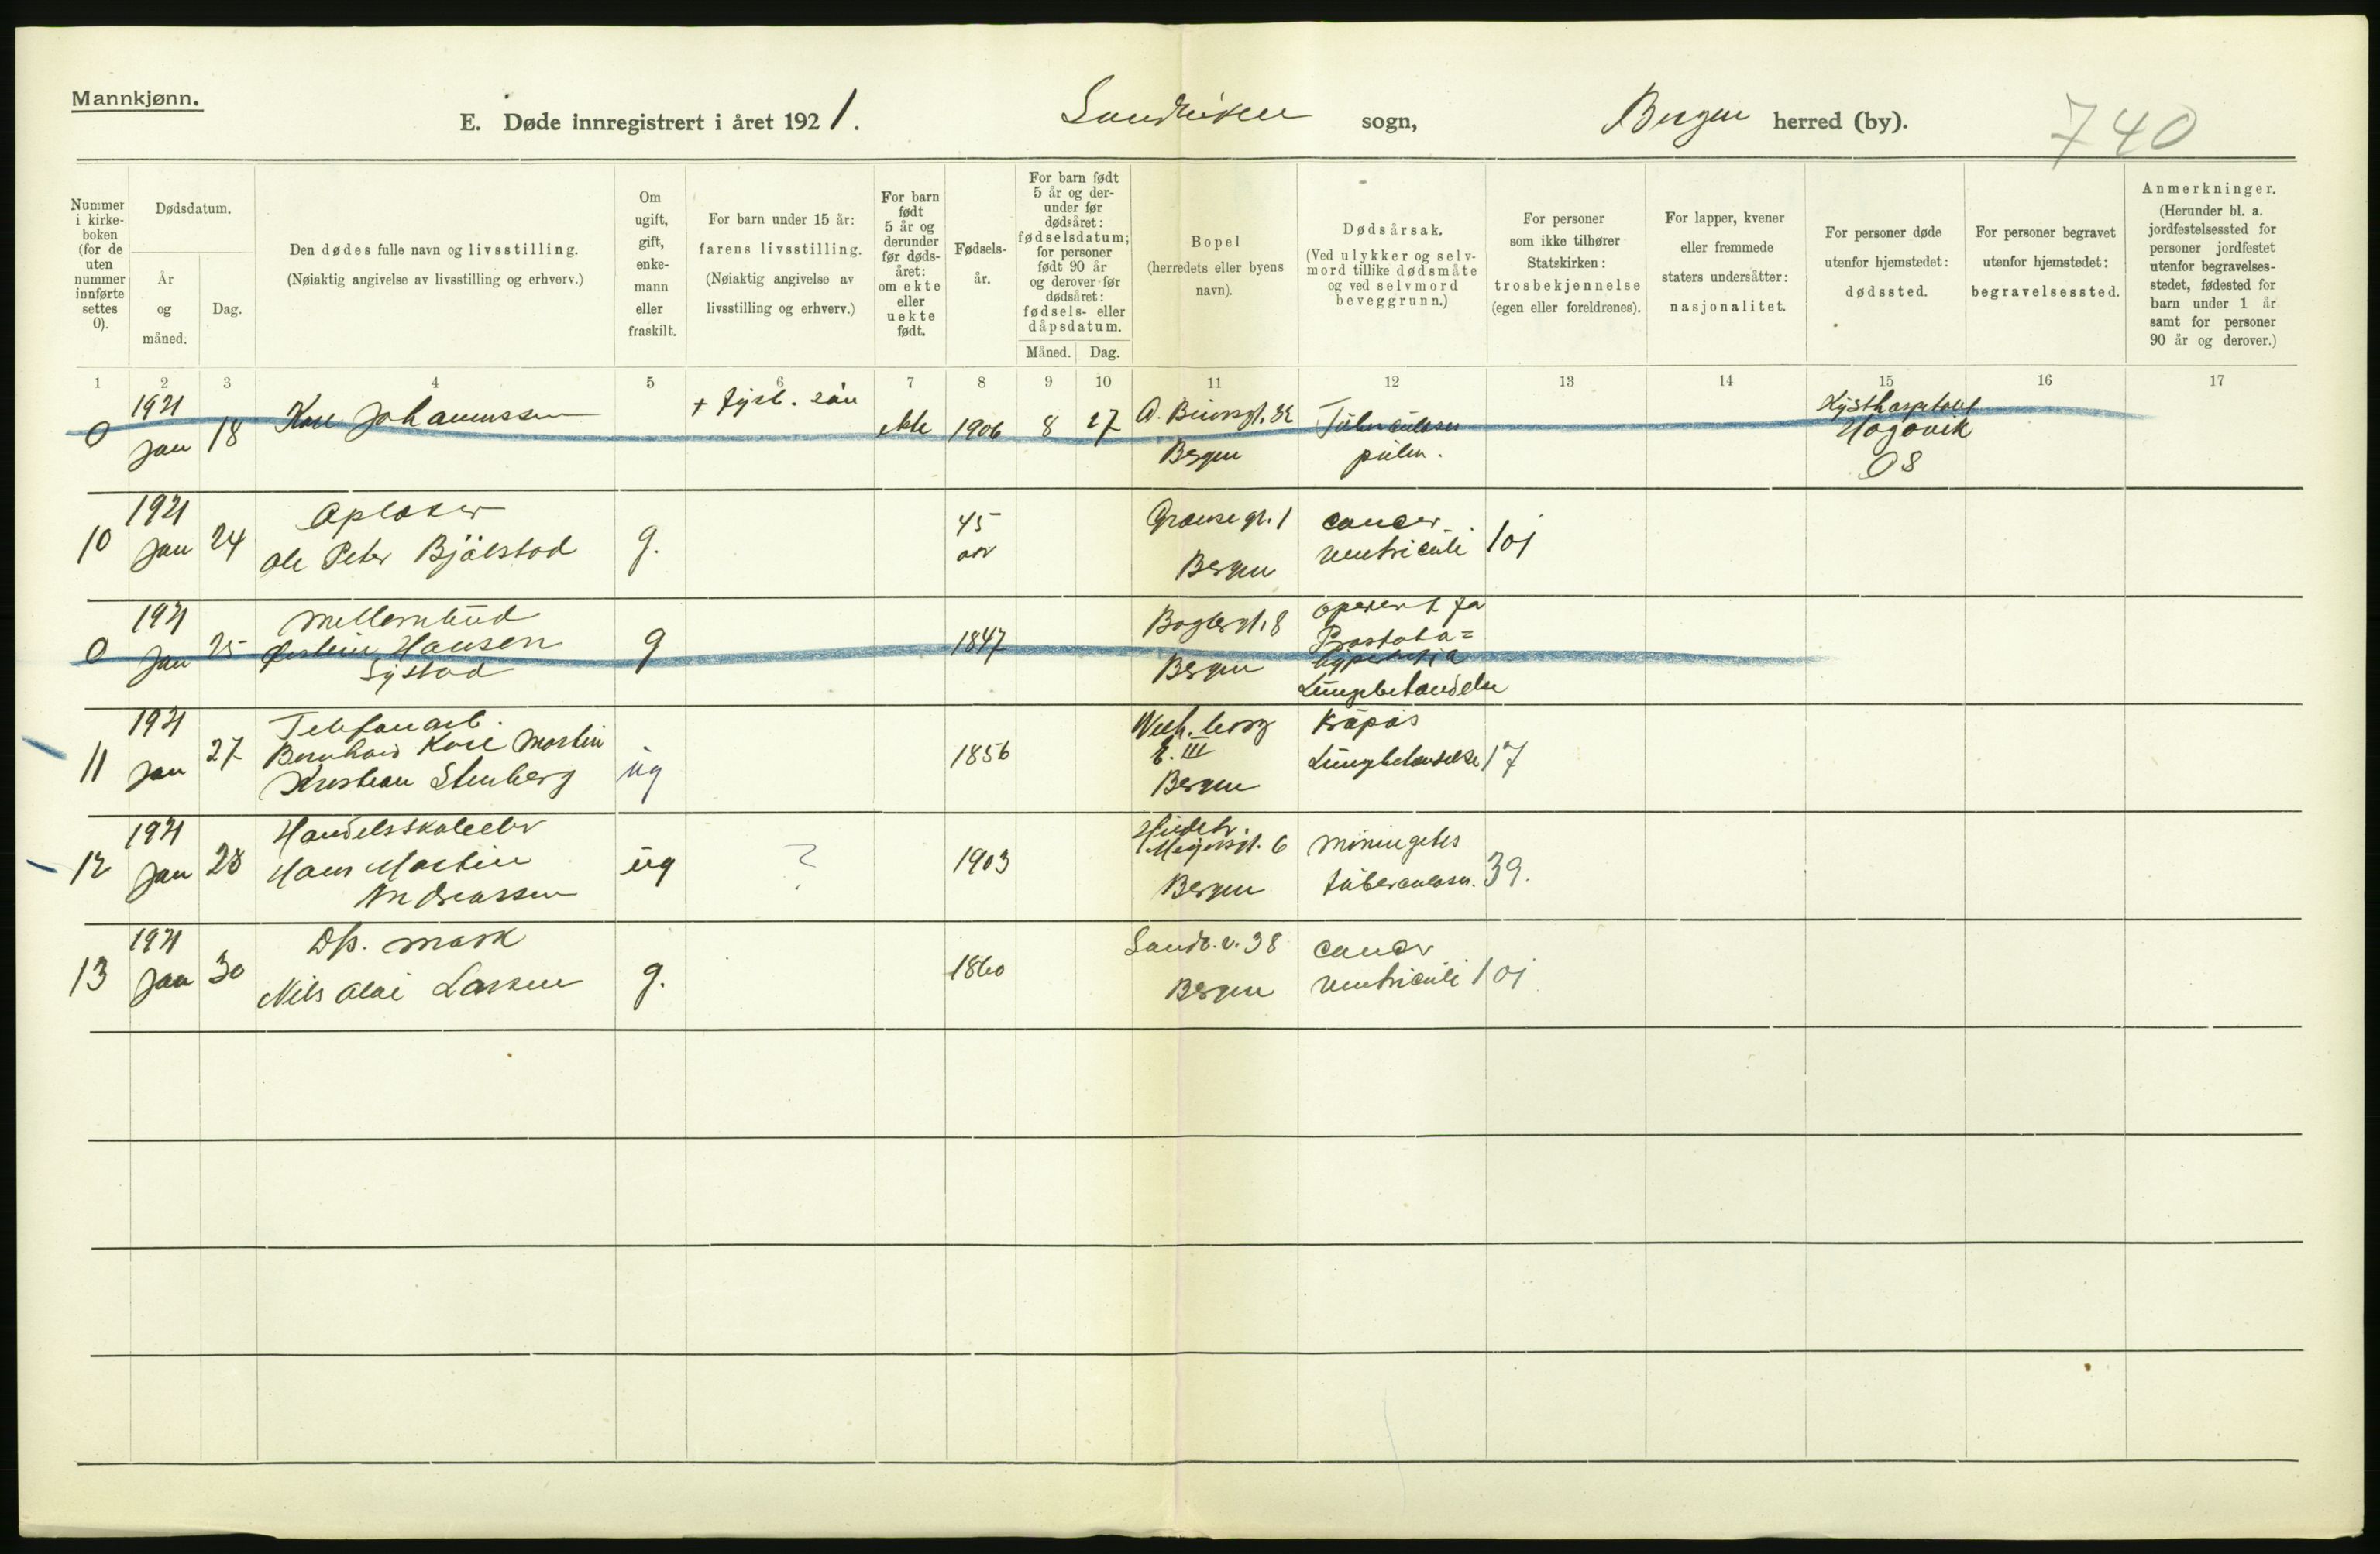 Mannkjønn.
E. Døde innregistrert i året 1921. Sandviken sogn, Bergen herred (by).
740
Nummer i kirke-boken (for de uten nummer innførte settes 0).
Dødsdatum.
År og måned.
Dag.
Den dødes fulle navn og livsstilling.
(Nøiaktig angivelse av livsstilling og erhverv.)
Om ugift, gift, enke-mann eller fraskilt.
For barn under 15 år:
farens livsstilling.
(Nøiaktig angivelse av livsstilling og erhverv.)
For barn født 5 år og derunder før døds-året: om ekte eller uekte født.
Fødsels-år.
For barn født 5 år og der-under før dødsåret: fødselsdatum; for personer født 90 år og derover før dødsåret: fødsels- eller dåpsdatum.
Måned. Dag.
Bopel
(herredets eller byens navn).
Dødsårsak.
(Ved ulykker og selv-mord tillike dødsmåte og ved selvmord beveggrunn.)
For personer som ikke tilhører Statskirken: trosbekjennelse (egen eller foreldrenes).
For lapper, kvener eller fremmede staters undersåtter: nasjonalitet.
For personer døde utenfor hjemstedet: dødssted.
For personer begravet utenfor hjemstedet: begravelsessted.
Anmerkninger.
(Herunder bl. a. jordfestelsessted for personer jordfestet utenfor begravelses-stedet, fødested for barn under 1 år samt for personer 90 år og derover.)
1 2 3 4 5 6 7 8 9 10 11 12 13 14 15 16 17
0 1921 Jan 18
Johannessen
+ fyrb. sån
ekte 1906 8 27
Bergen
Tuberculosis
pulm.
Kysthospitalet
Hagavik
08
10 1921 Jan 24
Opløser
Ole Peter Bjålstad
g.
45
aar
Grænsegt. 1
Bergen
cancer
ventriculi 101
0 1921 Jan 25
Mellembud
Øistein Hansen
Systad
g
1847
Baglergt. 8
Bergen
operert for
Prostata=
hypertrofia
Lungebetændelse
11 1921 Jan 27
Telefonarb.
Bernhard Kåre Martin
Kristian Stenberg
ug
1856
E. III
Bergen
krupøs
Lungebetændelse 17
12 1921 Jan 28
Handelsskoleelev
Hans Martin
Andreassen
ug
?
1903
Meyersgt. 6
Bergen
Meningitis
tuberculosa. 39.
13 1921 Jan 30
Dps. mask
Nils Olai Larsen
g.
1860
Sandv. v. 38
Bergen
cancer
ventriculi 101